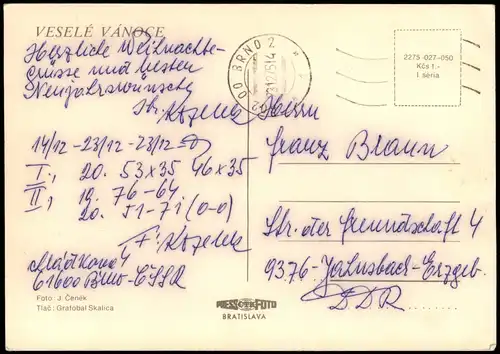 VESELÉ VÁNOCE
Herzliche Weihnachts-
Grüsse und besten
Neujahrswünsche
Ihr Kozelek
14/12 - 23/12 - 23/12
I, 20. 53x35 46x35
II, 19. 76-64
20. 51-71 (0-0)
F. Kozelek
61600 Brno - ČSSR
Foto: J. Čeněk
Tlač: Grafobal Skalica
PRESSFOTO
BRATISLAVA
BRNO 2
2275-027-050
Kčs 1.-
I. séria
Herrn
Franz Braun
Str. der Freundschaft 4
9376 - Jahnsbach - Erzgeb.
DDR